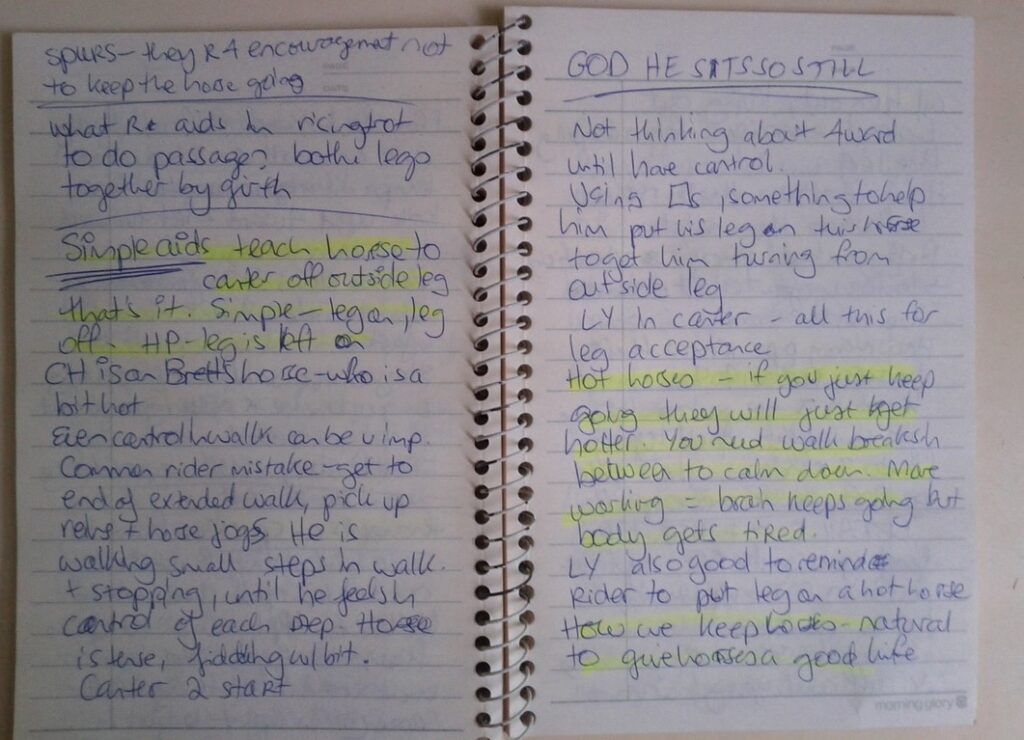 spurs - they R 4 encouragement not
to keep the horse going
what Re aids in risingtrot
to do passage? both legs
together by girth
Simple aids teach horse to
canter off outside leg
that's it. Simple - leg on, leg
off. HP - leg is left on
CH is on Bretts horse - who is a
bit hot
Even control in walk can be v imp.
Common rider mistake - get to
end of extended walk, pick up
reins + horse jogs. He is
walking small steps in walk.
+ stopping, until he feels in
control of each step. Horse
is tense, fiddling w/ bit.
Canter 2 start
GOD HE SITS SO STILL
Not thinking about 4ward
until have control.
Using □s, something to help
him put his leg on this horse
to get him turning from
outside leg
LY In canter - all this for
leg acceptance
Hot horses - if you just keep
going they will just get
hotter. You need walk breaks in
between to calm down. More
working = brain keeps going but
body gets tired.
LY also good to remind
Rider to put leg on a hot horse
How we keep horses - natural
to give horses a good life
morning glory